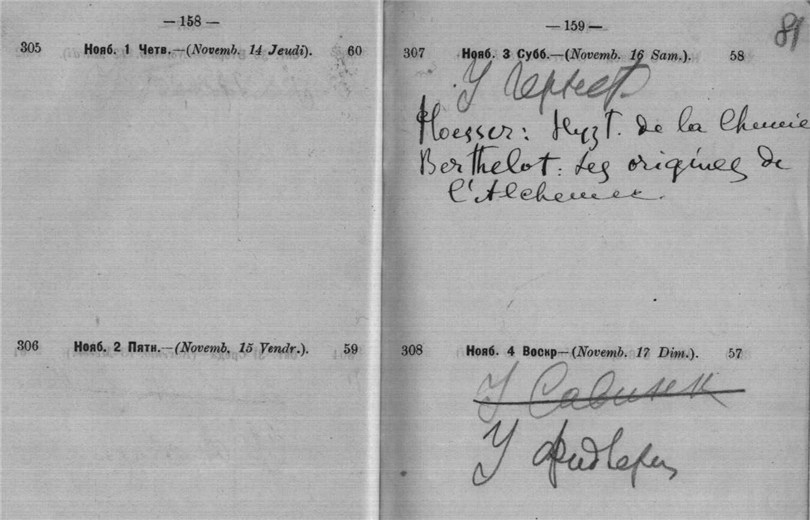 — 158 —
305 Нояб. 1 Четв.—(Novemb. 14 Jeudi). 60
306 Нояб. 2 Пятн.—(Novemb. 15 Vendr.). 59
— 159 —
81
307 Нояб. 3 Субб.—(Novemb. 16 Sam.). 58
У
de la Chemie
Berthelot: Les origines de
l'Alchemie.
308 Нояб. 4 Воскр—(Novemb. 17 Dim.). 57
У
У Фидлера